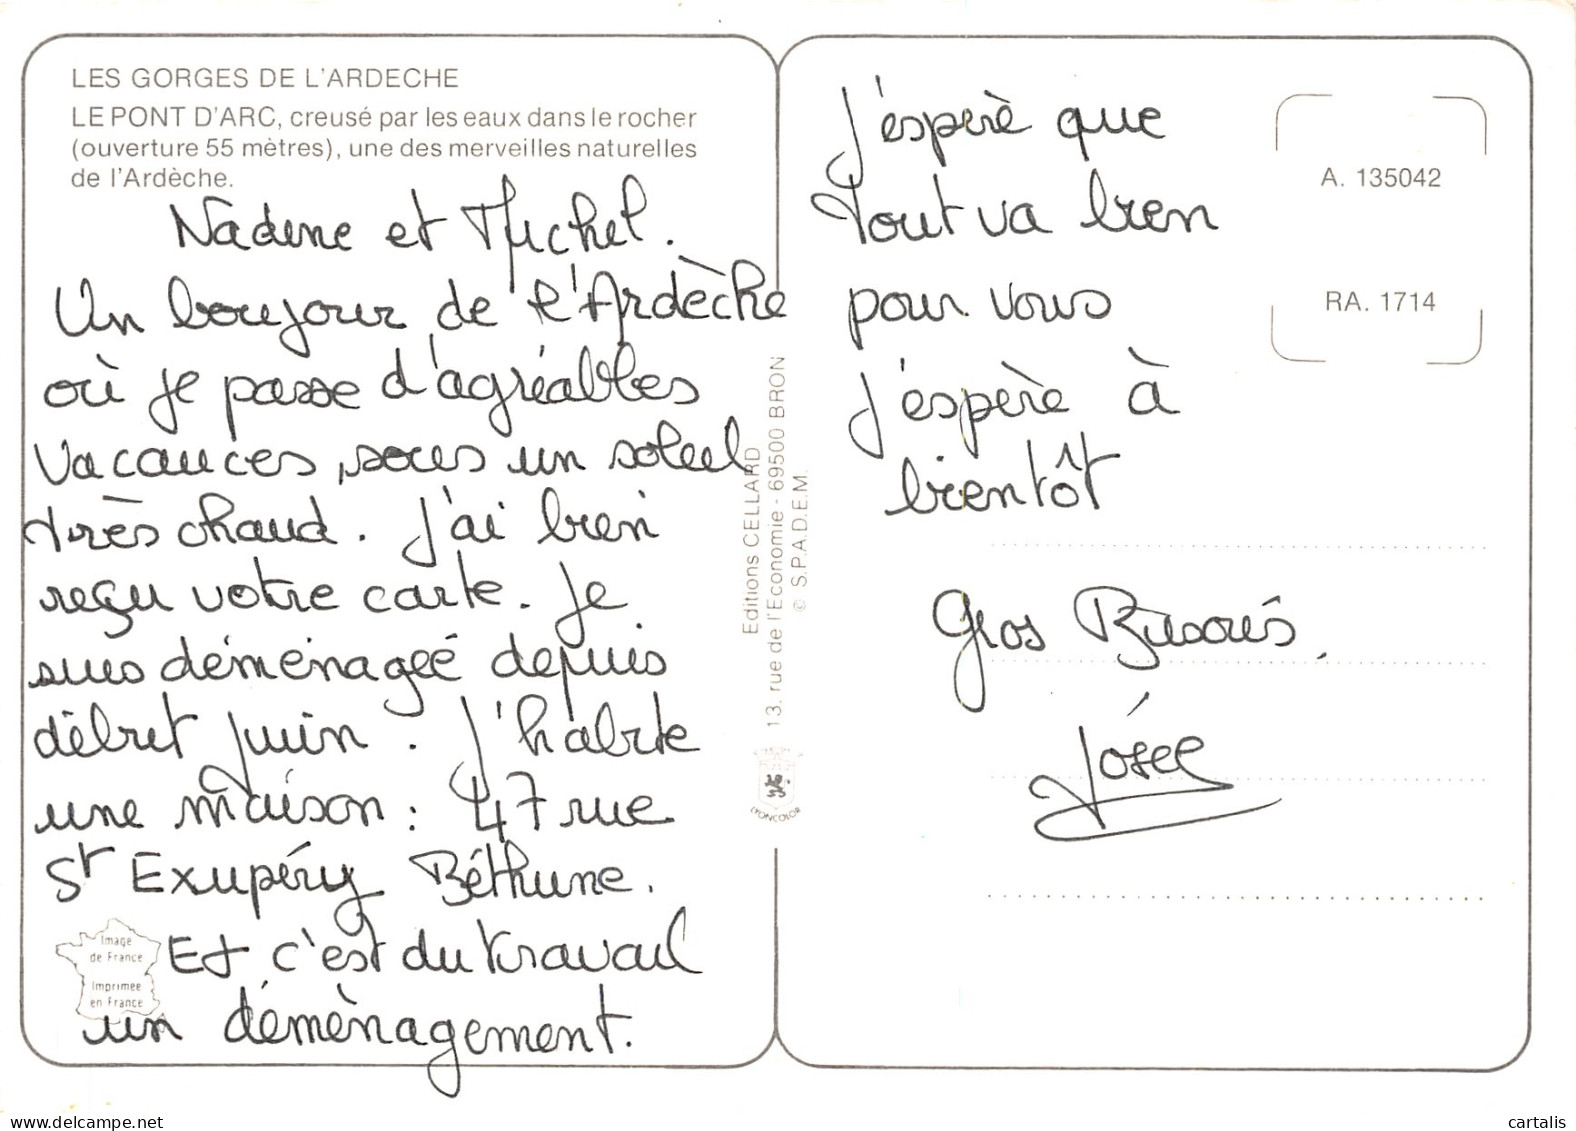 LES GORGES DE L'ARDECHE
LE PONT D'ARC, creusé par les eaux dans le rocher
(ouverture 55 mètres), une des merveilles naturelles
de l'Ardèche.
Nadine et Michel.
Un boujour de l'Ardèche
où je passe d'agréables
vacances, sous un soleil
très chaud. J'ai bien
reçu votre carte. Je
suis déménagéé depuis
début juin. J'habite
une maison : 47 rue
St Exupéry Béthune.
Et c'est du travail
un déménagement.
Image
de France
Imprimée
en France
Editions CELLARD
13, rue de l'Economie - 69500 BRON
© S.P.A.D.E.M.
LYONCOLOR
J'espèrè que
tout va bien
pour vous
J'espère à
bientôt
Gros Bisous.
Josée
A. 135042
RA. 1714
delcampe.net
cartalis